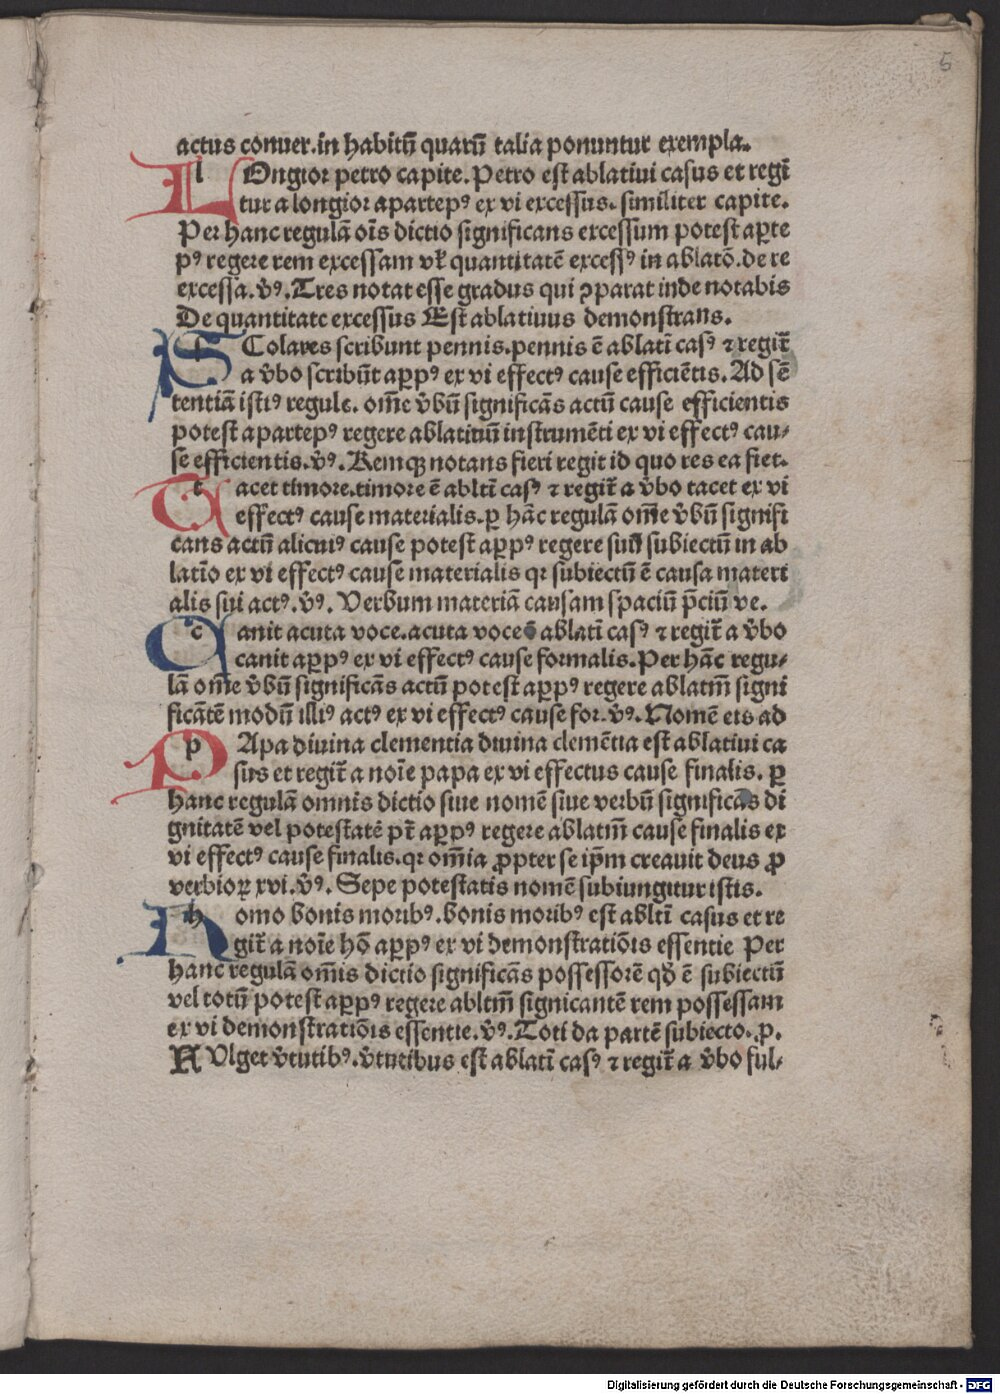 5
actus conuer.in habitū quarū talia ponuntur exempla.
LOngior petro capite.Petro est ablatiui casus et regi
tur a longior apartepꝰ ex vi excessus. similiter capite.
Per hanc regulā oīs dictio significans excessum potest aꝑte
pꝰ regere rem excessam vl' quantitatē excessꝰ in ablatō.de re
excessa.v̓ꝰ.Tres notat esse gradus qui ꝯparat inde notabis
De quantitate excessus Est ablatiuus demonstrans.
SColares scribunt pennis.pennis ē ablati casꝰ ⁊ regit̄
a v̓bo scribūt aꝑpꝰ ex vi effectꝰ cause efficiētis. Ad sē
tentiā istiꝰ regule. om̄e v̓bū significās actū cause efficientis
potest apartepꝰ regere ablatiuū instrumēti ex vi effectꝰ cau-
se efficientis.v̓ꝰ.Remqꝫ notans fieri regit id quo res ea fiet.
tacet timore.timore ē ablti̅ casꝰ ⁊ regit̄ a v̓bo tacet ex vi
effectꝰ cause materialis.ꝑ hāc regulā om̄e v̓bū signifi
cans actū alicuiꝰ cause potest aꝑpꝰ regere suū subiectū in ab
latīo ex vi effectꝰ cause materialis qꝛ subiectū ē causa materi
alis sui actꝰ.v̓ꝰ. Verbum materiā causam spaciū p̄ciū ve.
canit acuta voce.acuta voce ē ablati̅ casꝰ ⁊ regit̄ a v̓bo
canit aꝑpꝰ ex vi effectꝰ cause formalis.Per hāc regu-
lā om̄e v̓bū significās actū potest aꝑpꝰ regere ablatm̄ signi
ficātē modū illiꝰ actꝰ ex vi effectꝰ cause for.v̓ꝰ.Nomē eis ad
PApa diuina clementia diuina clemētia est ablatiui ca
sus et regit̄ a noīe papa ex vi effectus cause finalis. ꝑ
hanc regulā omnis dictio siue nomē siue verbū significās di
gnitatē vel potestatē pt̄ aꝑpꝰ regere ablatm̄ cause finalis ex
vi effectꝰ cause finalis.qꝛ om̄ia ꝓpter se ip̄m creauit deus ꝓ
verbioꝝ xvi.v̓ꝰ. Sepe potestatis nomē subiungitur istis.
homo bonis moribꝰ.bonis moribꝰ est ablti̅ casus et re
git̄ a noīe hō aꝑpꝰ ex vi demonstratiōis essentie Per
hanc regulā om̄is dictio significās possessorē qd̓ ē subiectū
vel totū potest aꝑpꝰ regere abltm̄ signicantē rem possessam
ex vi demonstratiōis essentie.v̓ꝰ.Toti da partē subiecto.ꝓ.
FUlget v̓tutibꝰ.v̓tutibus est ablati̅ casꝰ ⁊ regit̄ a v̓bo ful-
Digitalisierung gefördert durch die Deutsche Forschungsgemeinschaft - DFG